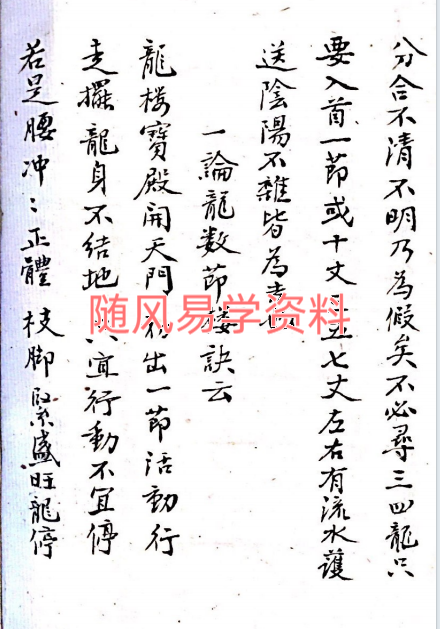 分合不清不明乃為假矣不必尋三四龍只
要入首一節或十丈 五七丈左右有流水護
送陰陽不雜皆為
一論龍数節楼訣云
龍楼寶殿開天門 出一節活動行
走擺龍身不结地 宜行動不宜停
若是腰冲：正體枝脚緊盛旺龍停
随风易学资料